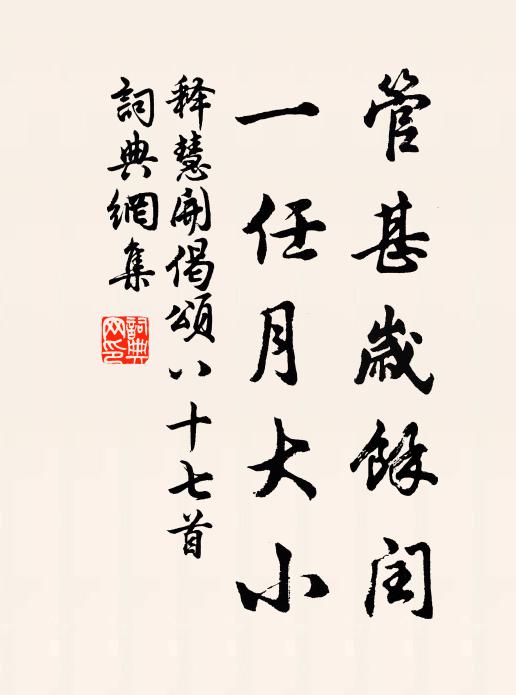 管甚歲餘閏
一任月大小
释慧開偈頌八十七首
詞典網集
詞典網印